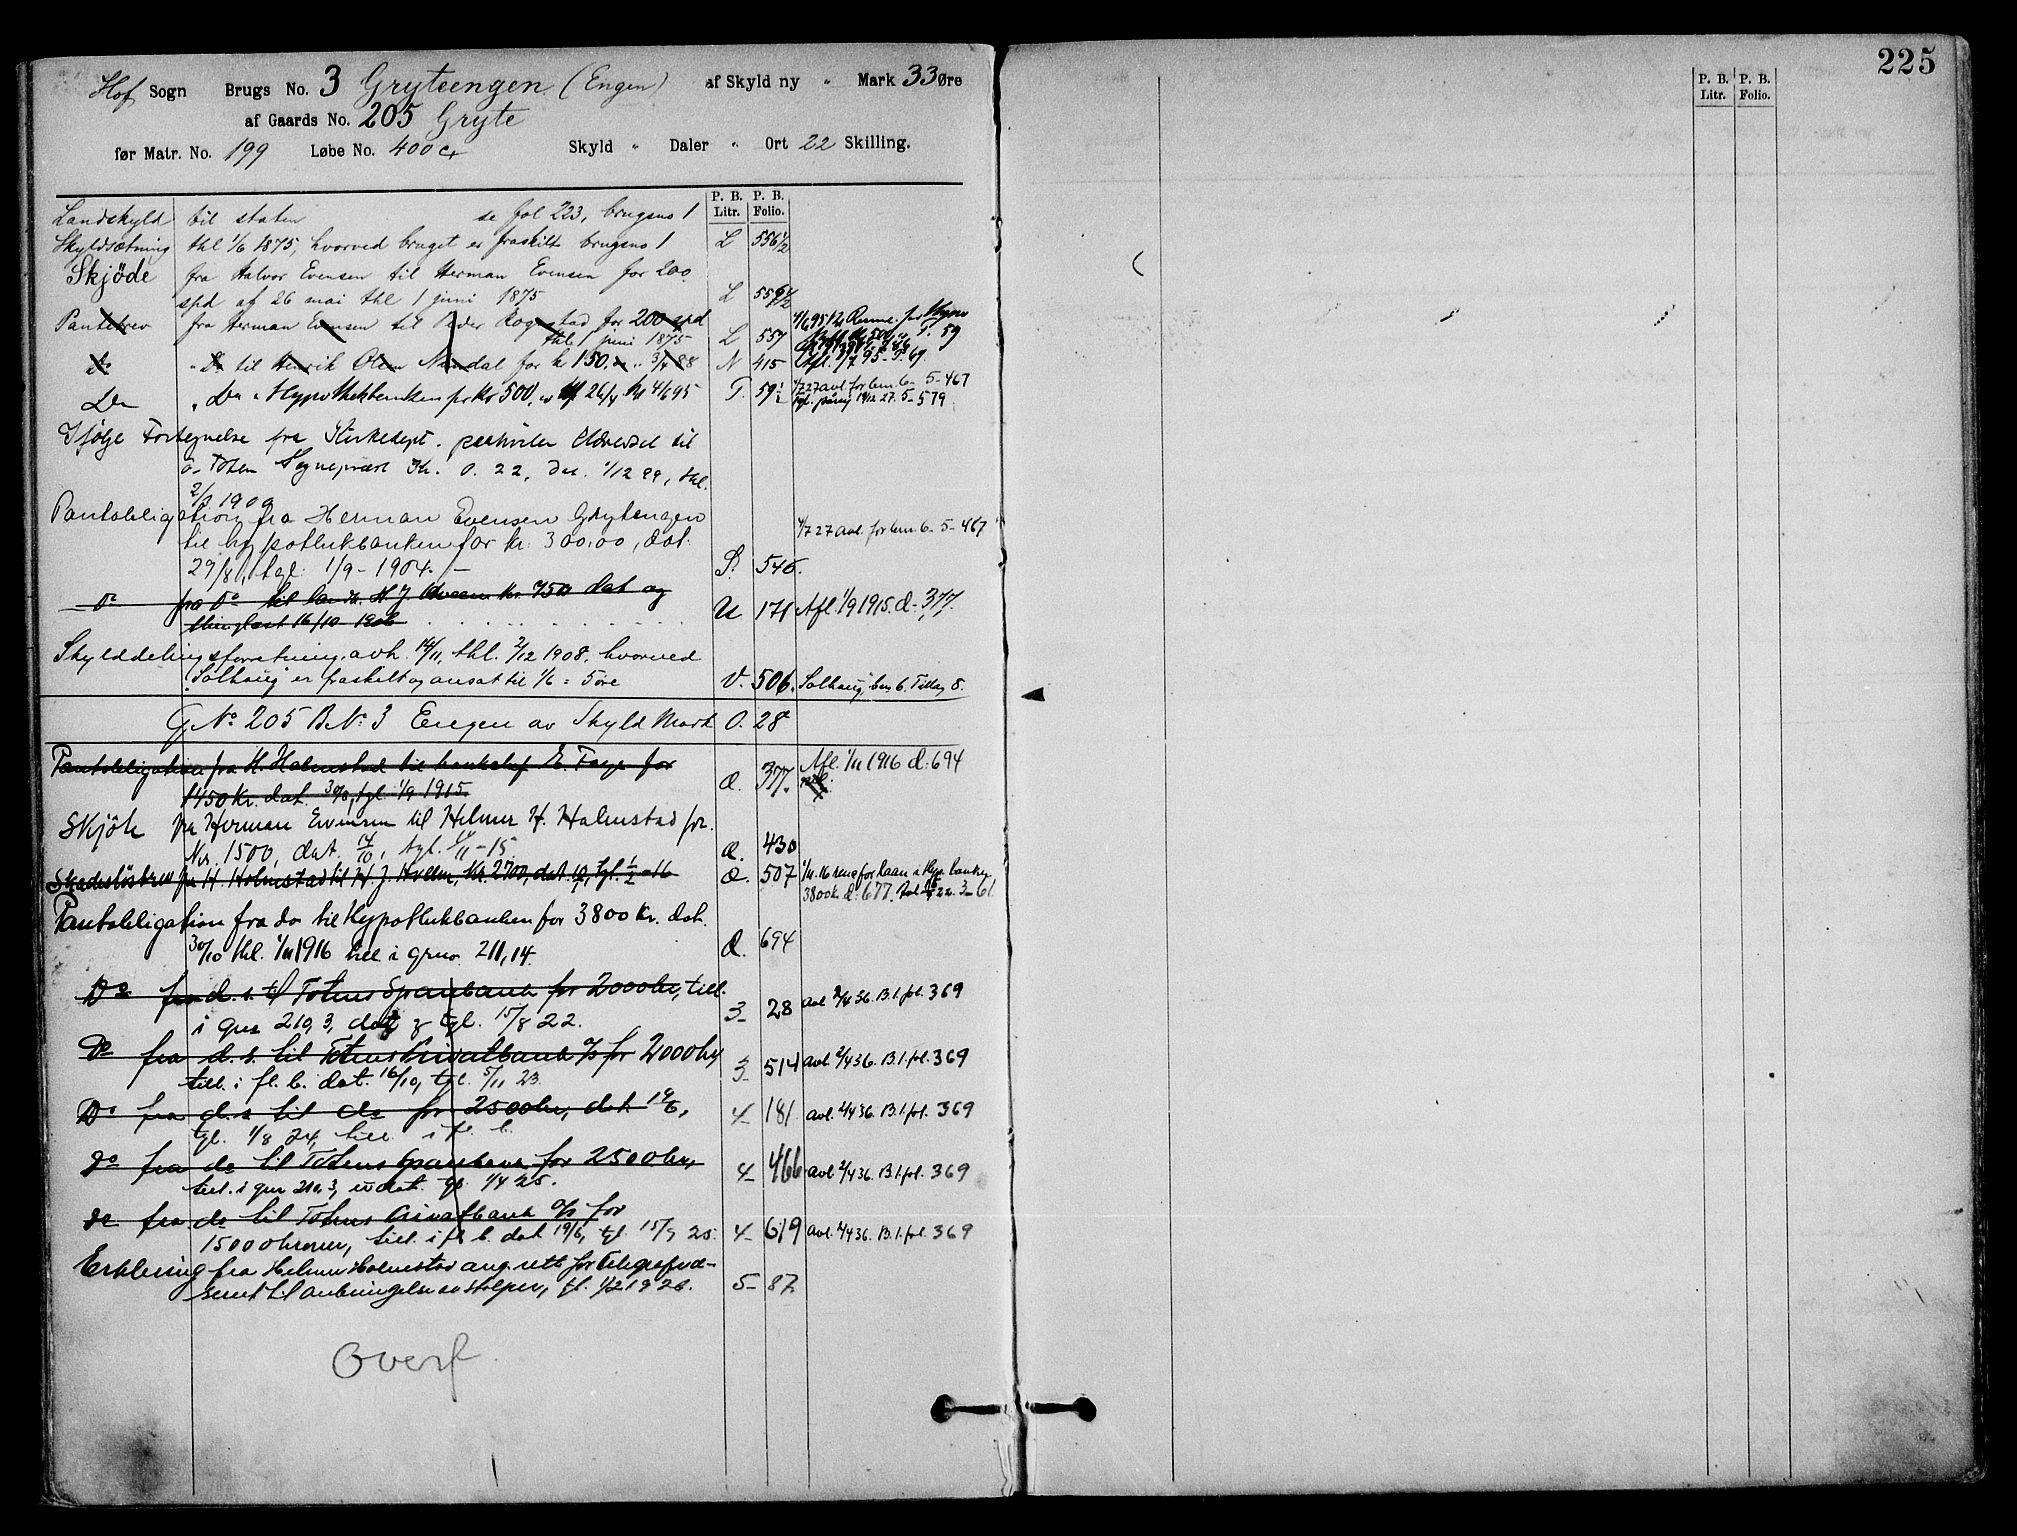 225
Hof Sogn Brugs No. 3 Gryteengen (Engen) af Skyld ny " Mark 33 Øre
af Gaards No. 205 Gryte
før Matr. No. 199 Løbe No. 400 Skyld " Daler " Ort 22 Skilling.
P. B. Litr. P. B. Folio.
P. B. Litr. P. B. Folio.
Landskyld til staten se fol 223, brugsno 1
Skyldsætning thl 1/6 1875, hvorved bruget er fraskilt brugsno 1 L 556 1/2
Skjöde fra Halvor Evensen til Herman Evensen for 200
spd af 26 mai thl 1 juni 1875 L
Pantebrev fra Herman Evensen til Peder Rognstad for 200 spd
thl 1 juni 1875 L 557
Do " Do til Henrik Olsen for kr 150, N 415
Do " Do " Hypothekbanken for Kr 500, 26/4 4/6 95 T. 59 1/2 4/7 27 avl. for lem 6- 5-467
Tgl. paany 19/12 27. 5-579
Ifølge Fortegnelse fra Kirkedept. paahviler til
Ø. Toten Kr. 0.22, Dat. 1/12 99, thl.
1900
Pantobligation fra Herman Evensen Grytengen 4/7 27 avl. for lem 6- 5-467
til hypothekbanken for kr. 300.00, dat.
29/8, tgl. 1/9-1904. S. 546.
Do fra Do til H. J. Kr. 750 dat og
thinglæst 16/10 1906 U 171 Afl. 1/9 1915. Æ-377.
Skylddelingsforretning avh. 14/11, thl. 2/12 1908, hvorved
"Solhaug" er fraskilt og ansat til 1/6 = 5 øre V. 506. Solhaug, bno 6. Tillæg 8.
G. No 205 B. No 3 Engen av Skyld Mark 0.28
Pantobligation fra H. Holmstad til banksjef for
1450 Kr. dat. 30/8, tgl. 1/9 1915. Æ. 377. Afl. 1/11 1916 Æ: 694
Skjöte fra Herman Evensen til Helmer H. Holmstad for
Kr. 1500, dat. 14/10, tgl. 1/11-15 Æ. 430
Skadeslösbrev fra H. Holmstad til H. J. Kr. 2700, dat. tgl. 1/2-16 Æ. 507 1/11.16 for laan i Hyp. banken
3800 k. Æ: 677. 22. 3-61
Pantobligation fra do til Hypothekbanken for 3800 Kr. dat.
30/10 thl. 1/11 1916 till i grno. 211, 14. Æ. 694
Do fra d. s. til Totens Sparebank for 2000 kr, till.
i gno 210, 3, dat og tgl. 15/8 22. 3- 28 avl 2/4 36. B. 1. fol. 369
Do fra d. s. til Totens Privatbank A/S for 2000 kr,
till. i fl. b. dat. 16/10, tgl. 5/11 23. 3- 514 avl. 2/4 36. B. 1. fol. 369
Do fra d. s. til do for 2500 kr, dat.
tgl. 1/8 24, till. i fl. b. 4- 181 avl. 2/4 36. B. 1. fol. 369
Do fra do til Totens Sparebank for 2500 kr,
till. i gno 210, 3, dat. tgl. 1/4 25. 4- 466 avl 2/4 36. B. 1. fol. 369
do fra do til Totens Privatbank A/S for
15000 kroner, till. i fl. b. dat 19/6, tgl. 15/7 25. 4- 619 avl. 2/4 36. B. 1. fol. 369
Erklering fra Helmer Holmstad ang. rett for Telegrafve-
senet til anbringelse av stolper, tgl. 1/2 1926. 5- 87
Overf.